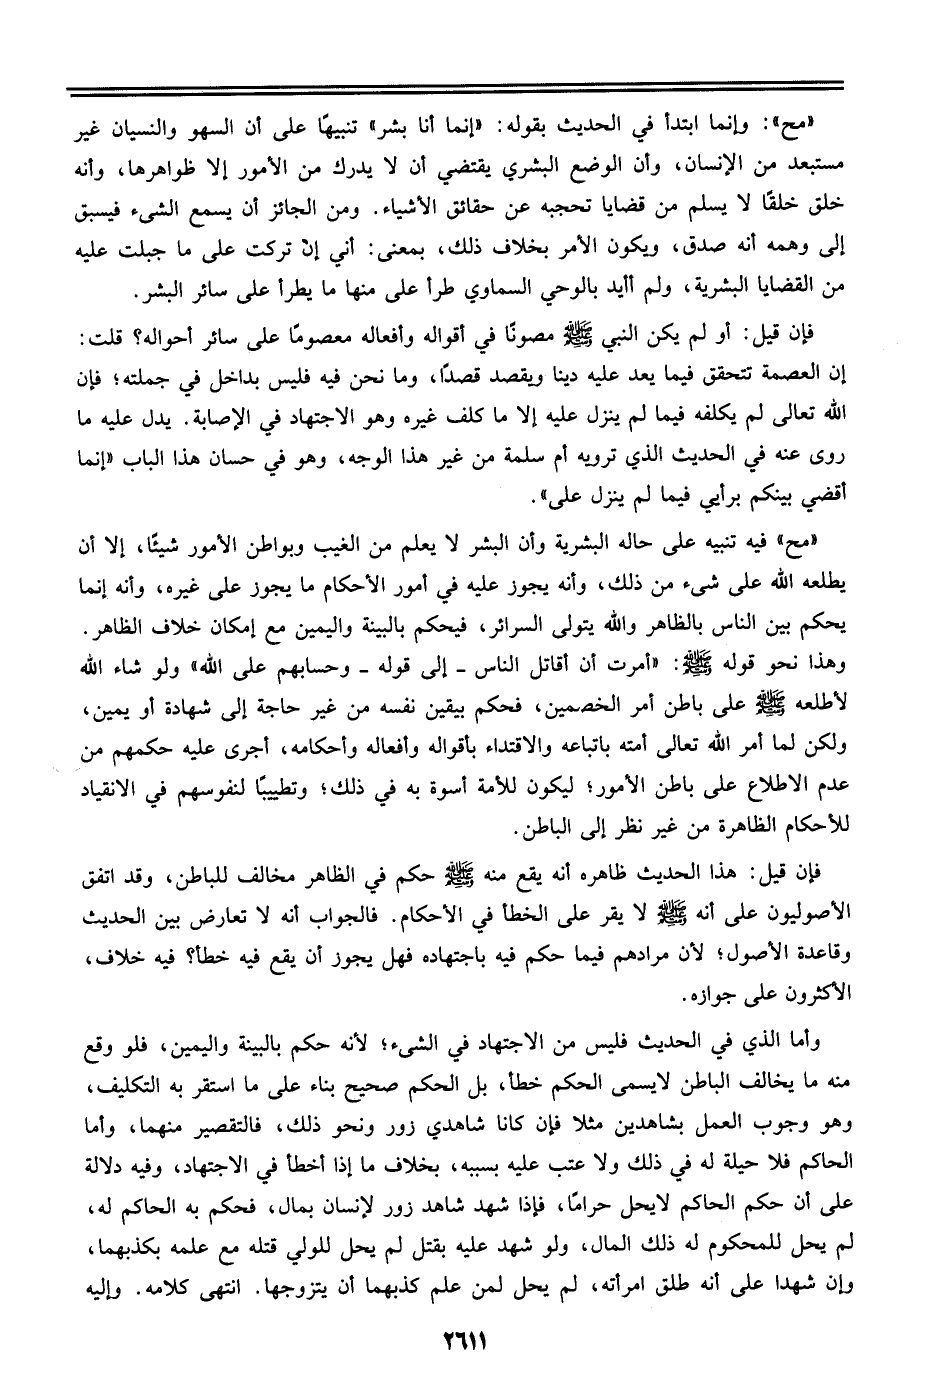 «مح»: وإنما ابتدأ في الحديث بقوله: «إنما أنا بشر» تنبيهًا على أن السهو والنسيان غير
مستبعد من الإنسان، وأن الوضع البشري يقتضي أن لا يدرك من الأمور إلا ظواهرها، وأنه
خلق خلقًا لا يسلم من قضايا تحجبه عن حقائق الأشياء. ومن الجائز أن يسمع الشىء فيسبق
إلى وهمه أنه صدق، ويكون الأمر بخلاف ذلك، بمعنى: أني إنْ تركت على ما جبلت عليه
من القضايا البشرية، ولم أأيد بالوحي السماوي طرأ على منها ما يطرأ على سائر البشر.
فإن قيل: أو لم يكن النبي ﷺ مصونًا في أقواله وأفعاله معصومًا على سائر أحواله؟ قلت:
إن العصمة تتحقق فيما يعد عليه دينا ويقصد قصدًا، وما نحن فيه فليس بداخل في جملته؛ فإن
الله تعالى لم يكلفه فيما لم ينزل عليه إلا ما كلف غيره وهو الاجتهاد في الإصابة. يدل عليه ما
روى عنه في الحديث الذي ترويه أم سلمة من غير هذا الوجه، وهو في حسان هذا الباب «إنما
أقضي بينكم برأيي فيما لم ينزل على».
«مح» فيه تنبيه على حاله البشرية وأن البشر لا يعلم من الغيب وبواطن الأمور شيئًا، إلا أن
يطلعه الله على شىء من ذلك، وأنه يجوز عليه في أمور الأحكام ما يجوز على غيره، وأنه إنما
يحكم بين الناس بالظاهر والله يتولى السرائر، فيحكم بالبينة واليمين مع إمكان خلاف الظاهر.
وهذا نحو قوله ﷺ: «أمرت أن أقاتل الناس ـ إلى قوله ـ وحسابهم على الله» ولو شاء الله
لأطلعه ﷺ على باطن أمر الخصمين، فحكم بيقين نفسه من غير حاجة إلى شهادة أو يمين،
ولكن لما أمر الله تعالى أمته باتباعه والاقتداء بأقواله وأفعاله وأحكامه، أجرى عليه حكمهم من
عدم الاطلاع على باطن الأمور؛ ليكون للأمة أسوة به في ذلك؛ وتطييبًا لنفوسهم في الانقياد
للأحكام الظاهرة من غير نظر إلى الباطن.
فإن قيل: هذا الحديث ظاهره أنه يقع منه ﷺ حكم في الظاهر مخالف للباطن، وقد اتفق
الأصوليون على أنه ﷺ لا يقر على الخطأ في الأحكام. فالجواب أنه لا تعارض بين الحديث
وقاعدة الأصول؛ لأن مرادهم فيما حكم فيه باجتهاده فهل يجوز أن يقع فيه خطأ؟ فيه خلاف،
الأكثرون على جوازه.
وأما الذي في الحديث فليس من الاجتهاد في الشىء؛ لأنه حكم بالبينة واليمين، فلو وقع
منه ما يخالف الباطن لايسمى الحكم خطأ، بل الحكم صحيح بناء على ما استقر به التكليف،
وهو وجوب العمل بشاهدين مثلا فإن كانا شاهدي زور ونحو ذلك، فالتقصير منهما، وأما
الحاكم فلا حيلة له في ذلك ولا عتب عليه بسببه، بخلاف ما إذا أخطأ في الاجتهاد، وفيه دلالة
على أن حكم الحاكم لايحل حرامًا، فإذا شهد شاهد زور لإنسان بمال، فحكم به الحاكم له،
لم يحل للمحكوم له ذلك المال، ولو شهد عليه بقتل لم يحل للولي قتله مع علمه بكذبهما،
وإن شهدا على أنه طلق امرأته، لم يحل لمن علم كذبهما أن يتزوجها. انتهى كلامه. وإليه
٢٦١١